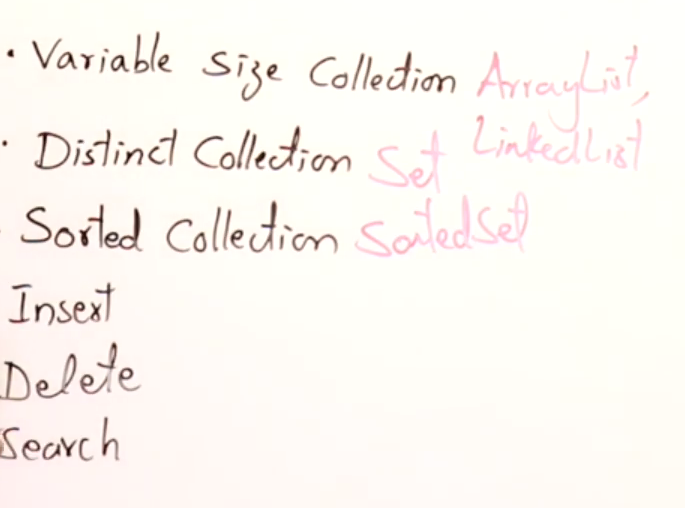 • Variable Size Collection ArrayList,
LinkedList
• Distinct Collection Set
Sorted Collection SortedSet
Insert
Delete
Search